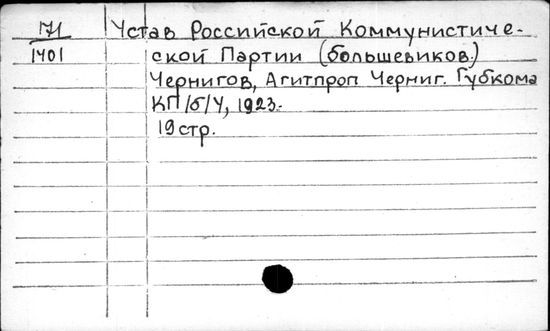 71 Устав Российской Коммунистиче-
1401 ской Партии (большевиков.)
Чернигов, Агитпроп Черниг. Губкома
КП/б/У, 1923.
19 стр.